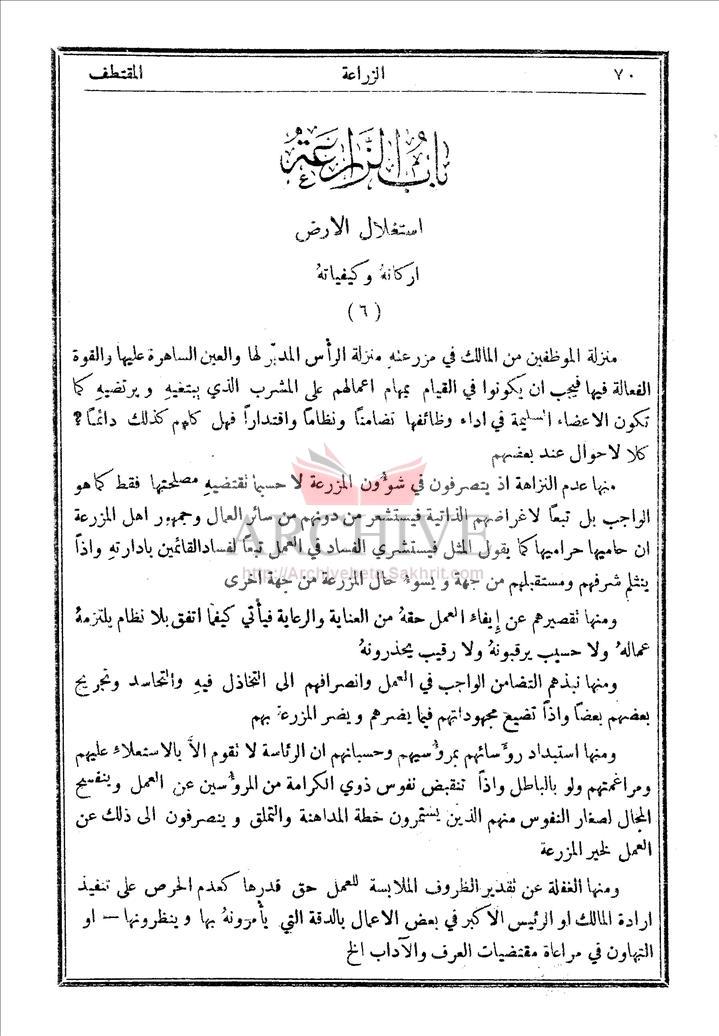 ٧٠ الزراعة المقتطف
باب الزراعة
استغلال الارض
اركانهُ وكيفياتهُ
(٦)
منزلة الموظفين من المالك في مزرعتهِ منزلة الرأس المدبّر لها والعين الساهرة عليها والقوة
الفعالة فيها فيجب ان يكونوا في القيام بمهام اعمالهم على المشرب الذي يبتغيهِ ويرتضيهِ كما
تكون الاعضاء السليمة في اداء وظائفها تضامنًا ونظامًا واقتدارًا فهل كلهم كذلك دائمًا؟
كلا لاحوال عند بعضهم
منها عدم النزاهة اذ يتصرفون في شؤون المزرعة لا حسبما تقتضيهِ مصلحتها فقط كما هو
الواجب بل تبعًا لاغراضهم الذاتية فيستشعر من دونهم من سائر العمال وجمهور اهل المزرعة
ARCHIVE
ان حاميها حراميها كما يقول المثل فيستشري الفساد في العمل تبعًا لفساد القائمين بادارتهِ واذًا
http://Archivebeta.Sakhrit.com
ينثلم شرفهم ومستقبلهم من جهة ويسوء حال المزرعة من جهة اخرى
ومنها تقصيرهم عن إيفاء العمل حقهُ من العناية والرعاية فيأتي كيفما اتفق بلا نظام يلتزمهُ
عمالهُ ولا حسيب يرقبونهُ ولا رقيب يحذرونهُ
ومنها نبذهم التضامن الواجب في العمل وانصرافهم الى التخاذل فيهِ والتحاسد وتجريح
بعضهم بعضًا واذًا تضيع مجهوداتهم فيما يضرهم ويضر المزرعة بهم
ومنها استبداد رؤسائهم بمرؤسيهم وحسبانهم ان الرئاسة لا تقوم الاَّ بالاستعلاء عليهم
ومراغمتهم ولو بالباطل واذًا تنقبض نفوس ذوي الكرامة من المرؤسين عن العمل وينفسح
المجال لصغار النفوس منهم الذين يستمرون خطة المداهنة والتملق وينصرفون الى ذلك عن
العمل لخير المزرعة
ومنها الغفلة عن تقدير الظروف الملابسة للعمل حق قدرها كعدم الحرص على تنفيذ
ارادة المالك او الرئيس الاكبر في بعض الاعمال بالدقة التي يأمرونهُ بها وينظرونها — او
التهاون في مراعاة مقتضيات العرف والآداب الخ